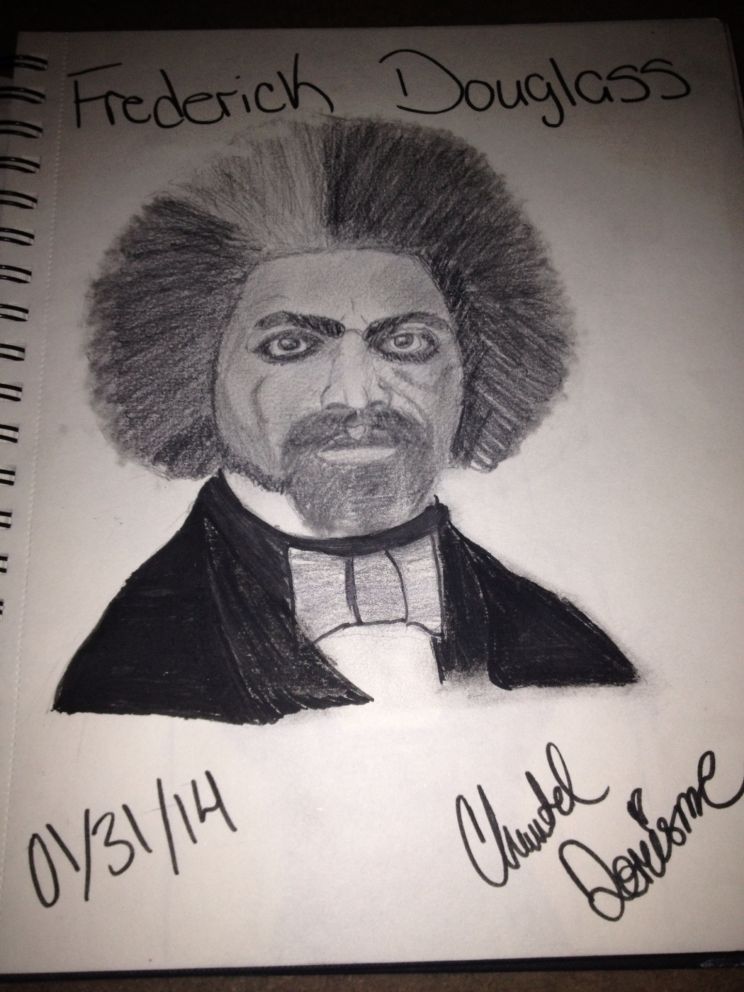 Frederick Douglass
01/31/14
Chantel
Dorisme